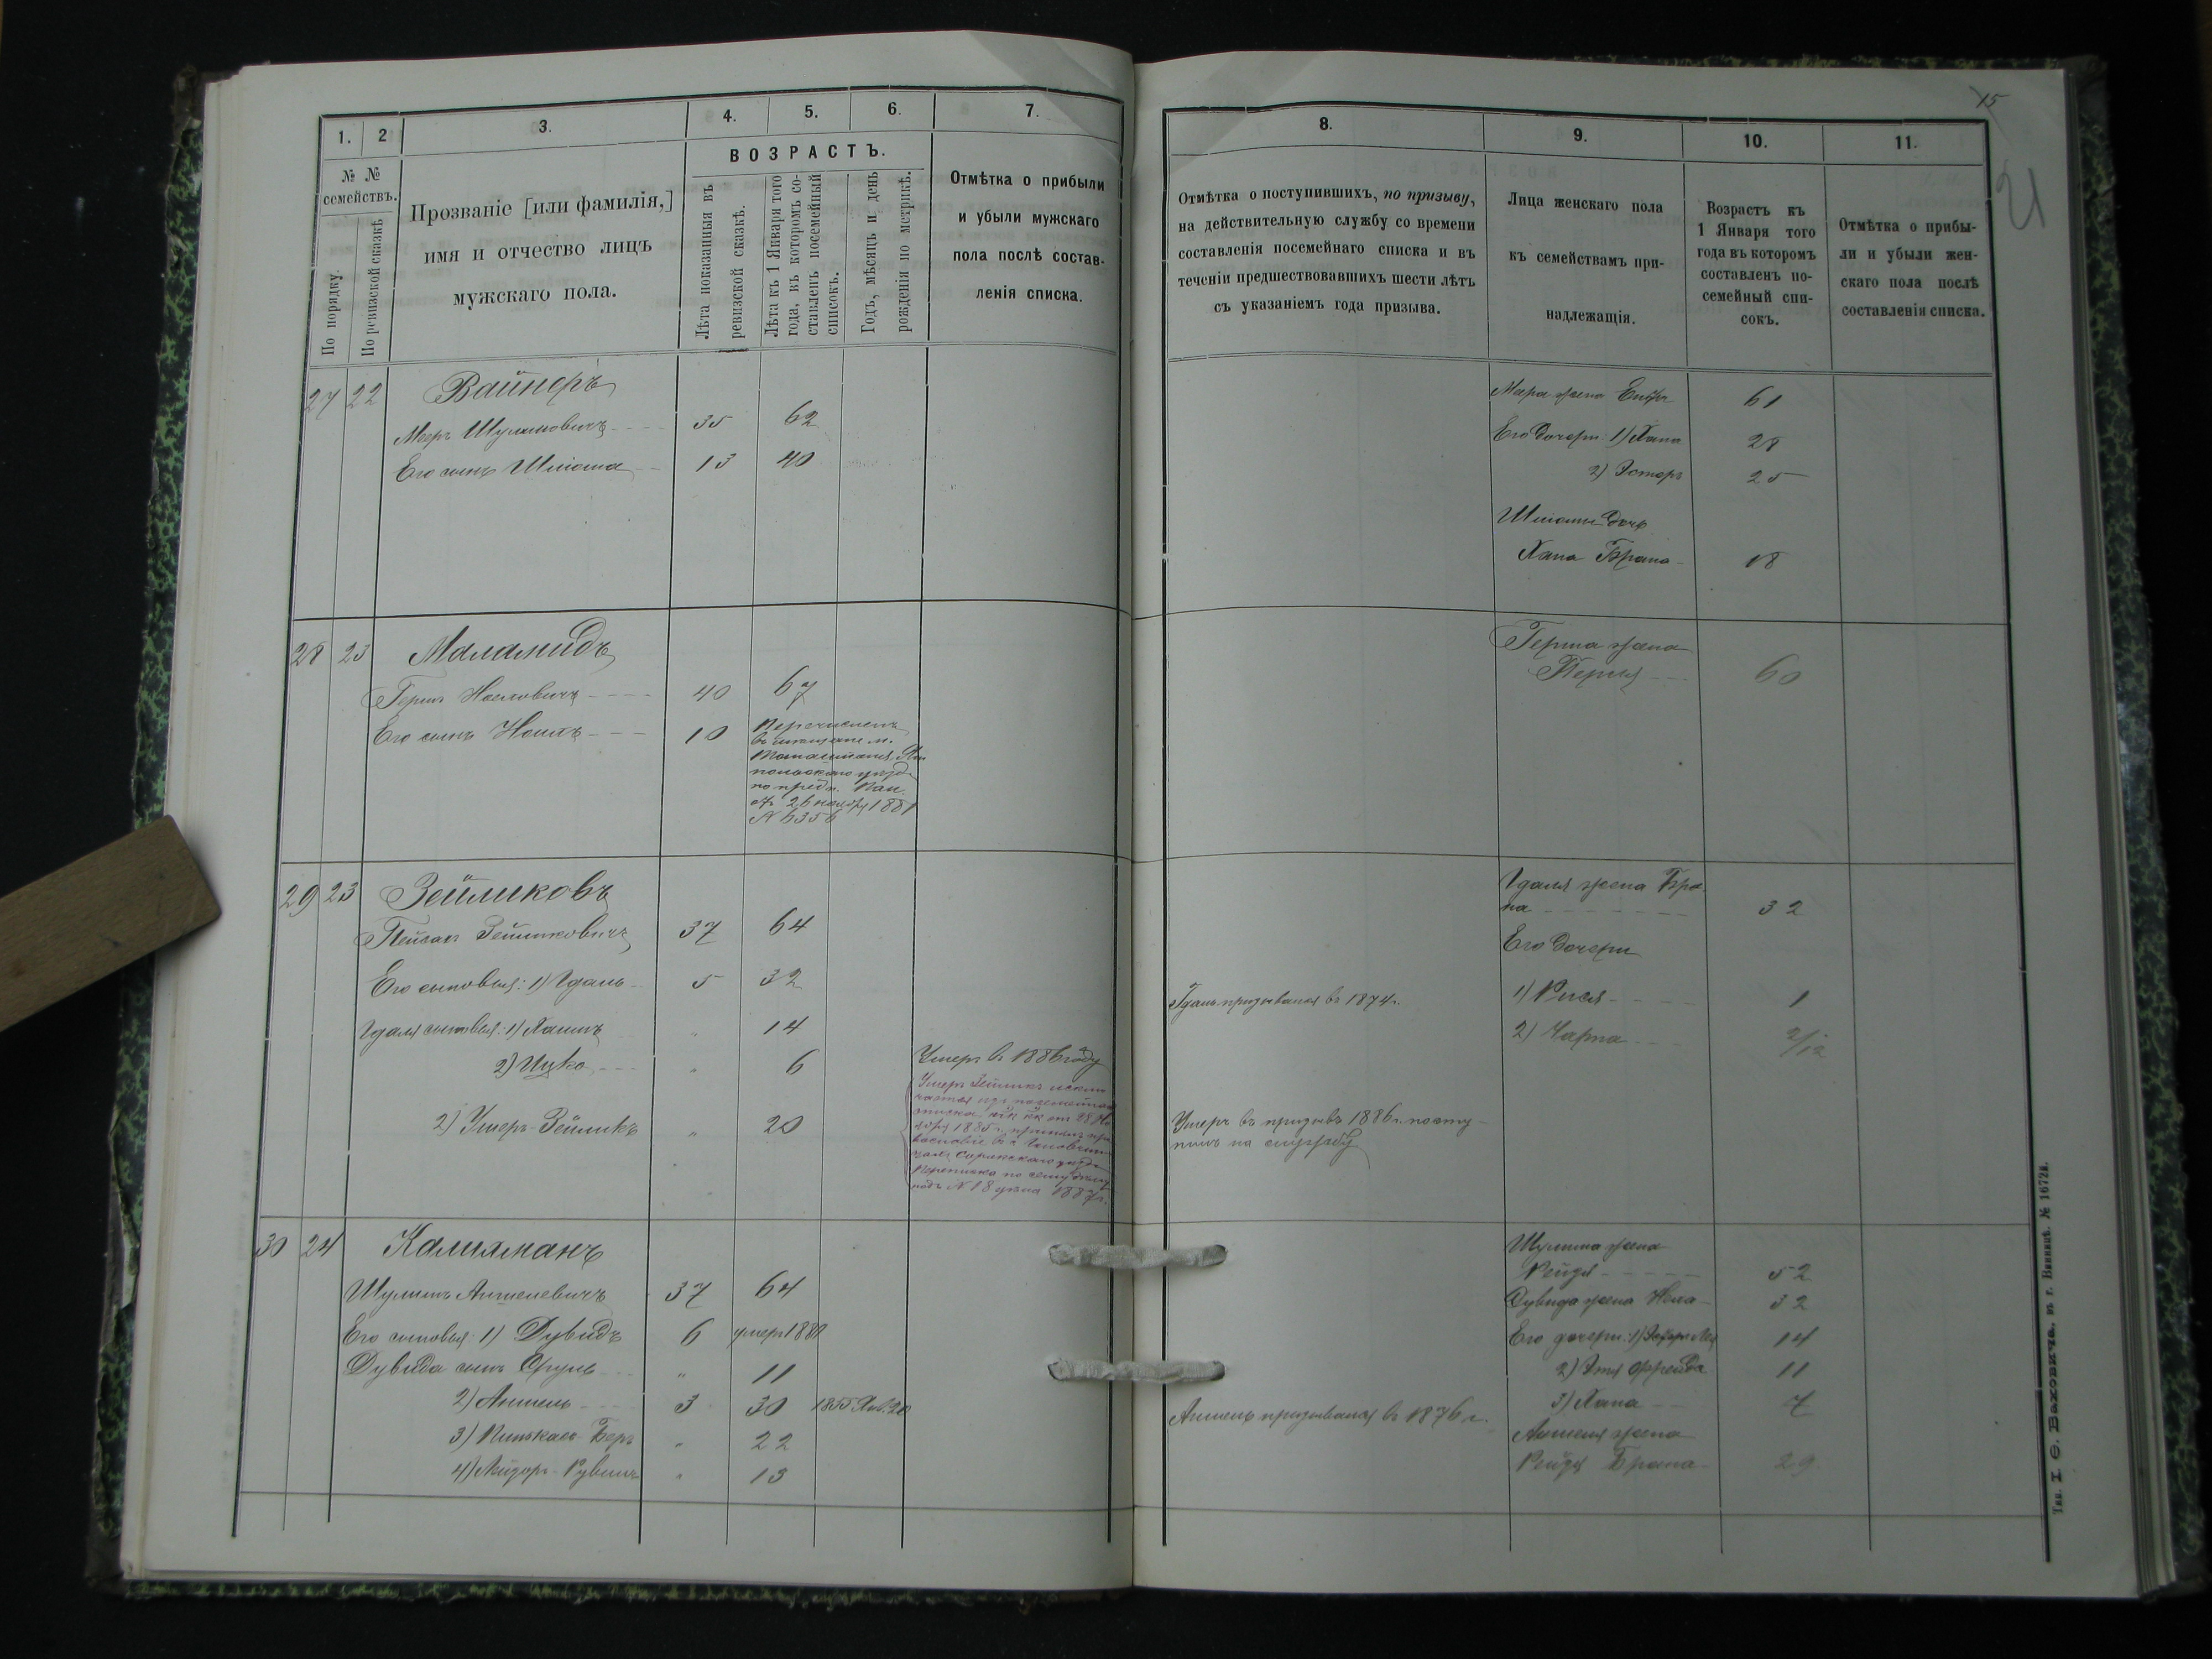 1.
2
3.
4.
5.
6.
7.
№ №
семействъ.
По порядку.
По ревизской сказкѣ
Прозваніе [или фамилія,]
имя и отчество лицъ
мужскаго пола.
ВОЗРАСТЪ.
Лѣта показанныя въ
ревизской сказкѣ.
Лѣта къ 1 Января того
года, въ которомъ со-
ставленъ посемейный
списокъ.
Годъ, мѣсяцъ и день
рожденія по метрикѣ.
Отмѣтка о прибыли
и убыли мужскаго
пола послѣ состав-
ленія списка.
27 22 Вайнеръ
Мееръ Шулимовичъ 35 62
Его сынъ Шліома 13 40
28 23 Маламидъ
Гершъ Ноеловичъ 40 67
Его сынъ 10
Перечисленъ
въ мещане м.
Томашполя Ям
польскаго уезда
по предп. Каз.
от 26 ноября 1881
N 6356
29 23 Зейликовъ
Пейсахъ Зейликовичъ 37 64
Его сыновья: 1) Гдаль 5 32
Гдаля сыновья: 1) Хаимъ " 14
2) Ицко " 6 Умеръ въ 1886 году
2) Ушеръ-Зейликъ " 20
Ушеръ Зейликъ исклю
чается изъ посемейнаго
списка
1885 г.
Сорокскаго уезда
Переписка по сему делу
подъ N 18 1887 г.
30 24 Калихманъ
Шулимъ Аншелевичъ 37 64
Его сыновья: 1) Дувидъ 6 умеръ 1880
Дувида сынъ Сруль " 11
2) Аншель 3 30 1855 Янв. 20
3) Пинькасъ-Беръ " 22
4) Лейзоръ-Рувинъ " 13
15
21
8.
9.
10.
11.
Отмѣтка о поступившихъ, по призыву,
на дѣйствительную службу со времени
составленія посемейнаго списка и въ
теченіи предшествовавшихъ шести лѣтъ
съ указаніемъ года призыва.
Лица женскаго пола
къ семействамъ при-
надлежащія.
Возрастъ къ
1 Января того
года въ которомъ
составленъ по-
семейный спи-
сокъ.
Отмѣтка о прибы-
ли и убыли жен-
скаго пола послѣ
составленія списка.
Меера жена 61
Его дочери: 1) Хана 28
2) Эстеръ 25
Шліомы дочь
Хана Брана 18
Герша жена
Перля 60
Гдаля жена Бра-
на 32
Его дочери
Гдаль призывался въ 1874 г.
1) Рися 1
2) Чарна 2/12
Ушеръ въ призывъ 1886 г. посту-
пилъ на службу
Шулима жена
Рейзя 52
Дувида жена Неха 32
Его дочери: 1) 14
2) Этя Фрейда 11
3) Хана 7
Аншель призывался въ 1876 г.
Аншеля жена
Рейзя Брана 29
Тип. І. Ѳ. Баховича, въ г. Винницѣ. № 1672а.